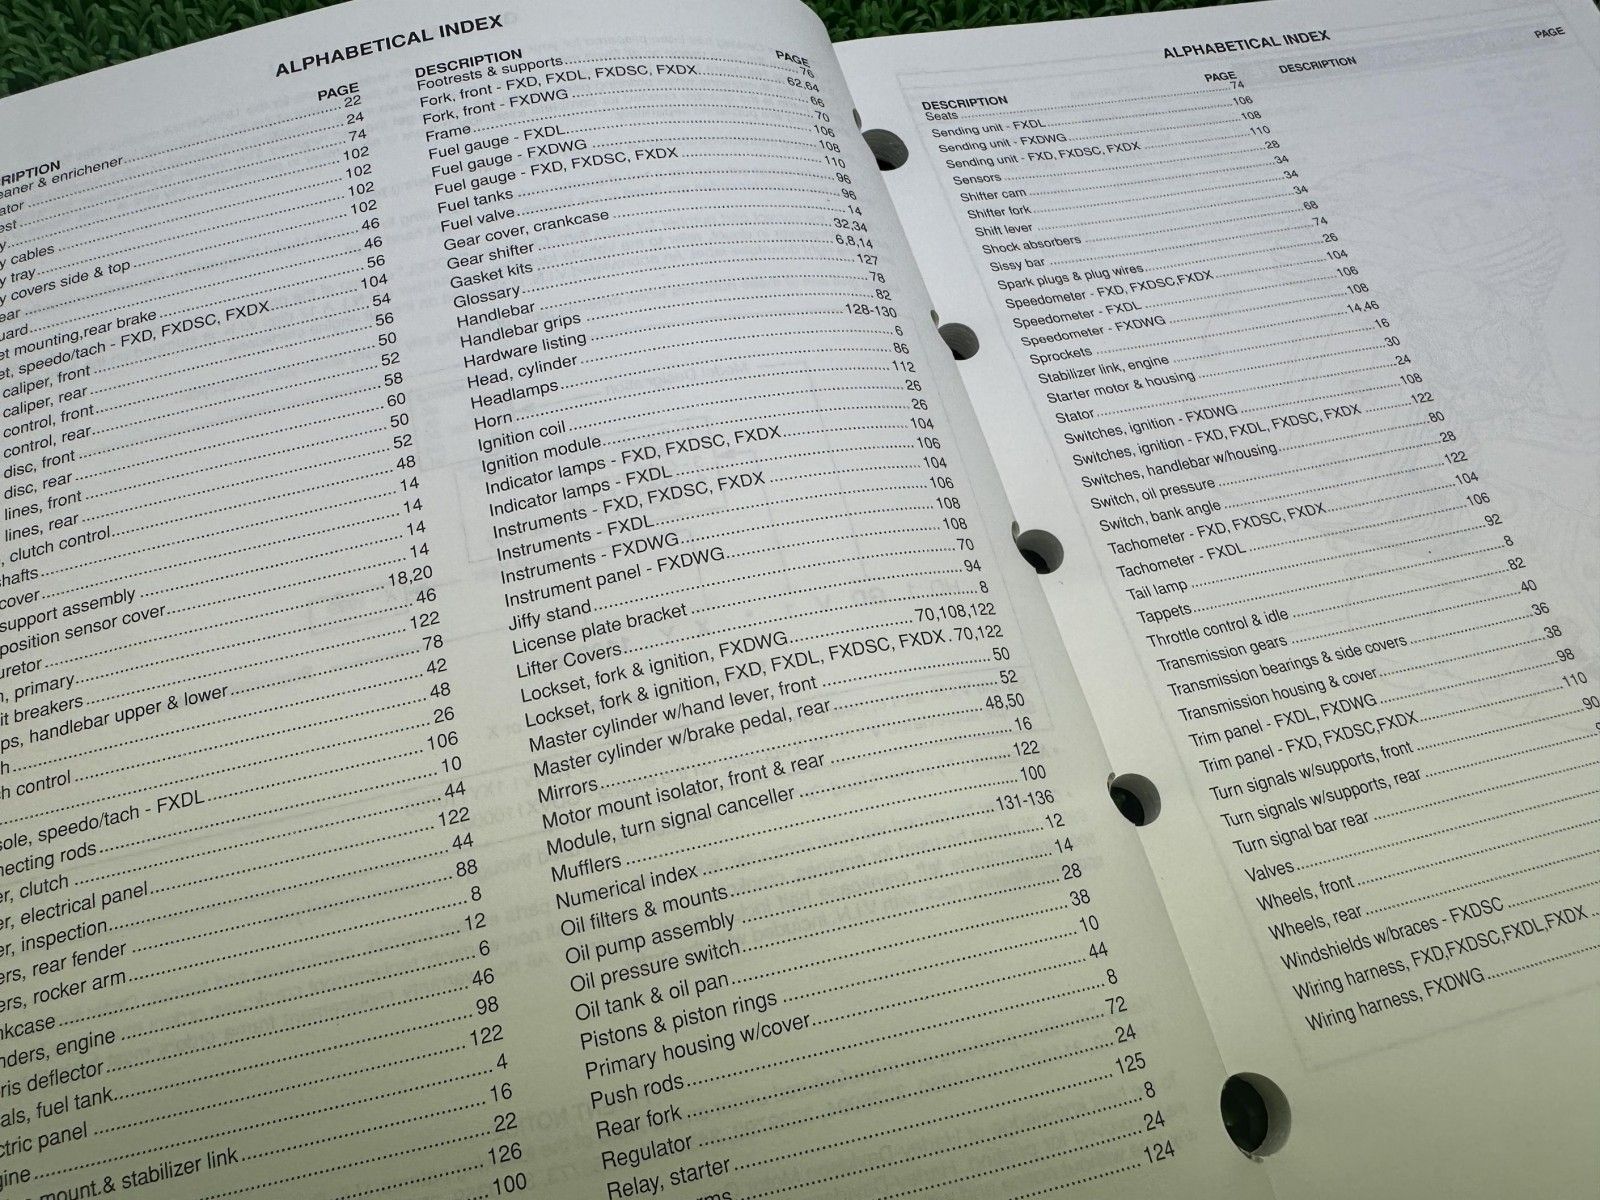 ALPHABETICAL INDEX
PAGE
RIPTION
eaner & enrichener 22
ator 24
est 74
y 102
y cables 102
y tray 102
y covers side & top 102
ear 46
uard 46
et mounting,rear brake 56
et, speedo/tach - FXD, FXDSC, FXDX 104
caliper, front 54
caliper, rear 56
control, front 50
control, rear 52
disc, front 58
disc, rear 60
lines, front 50
lines, rear 52
, clutch control 48
hafts 14
cover 14
support assembly 14
position sensor cover 14
uretor 18,20
n, primary 46
it breakers 122
ps, handlebar upper & lower 78
h 42
h control 48
26
sole, speedo/tach - FXDL 106
necting rods 10
er, clutch 44
er, electrical panel 122
er, inspection 44
ers, rear fender 88
ers, rocker arm 8
nkcase 12
nders, engine 6
ris deflector 46
als, fuel tank 98
ctric panel 122
gine 4
mount & stabilizer link 16
22
126
100
DESCRIPTION PAGE
Footrests & supports 76
Fork, front - FXD, FXDL, FXDSC, FXDX 62,64
Fork, front - FXDWG 66
Frame 70
Fuel gauge - FXDL 106
Fuel gauge - FXDWG 108
Fuel gauge - FXD, FXDSC, FXDX 110
Fuel tanks 96
Fuel valve 96
Gear cover, crankcase 14
Gear shifter 32,34
Gasket kits 6,8,14
Glossary 127
Handlebar 78
Handlebar grips 82
Hardware listing 128-130
Head, cylinder 6
Headlamps 86
Horn 112
Ignition coil 26
Ignition module 26
Indicator lamps - FXD, FXDSC, FXDX 104
Indicator lamps - FXDL 106
Instruments - FXD, FXDSC, FXDX 104
Instruments - FXDL 106
Instruments - FXDWG 108
Instrument panel - FXDWG 108
Jiffy stand 70
License plate bracket 94
Lifter Covers 8
Lockset, fork & ignition, FXDWG 70,108,122
Lockset, fork & ignition, FXD, FXDL, FXDSC, FXDX 70,122
Master cylinder w/hand lever, front 50
Master cylinder w/brake pedal, rear 52
Mirrors 48,50
Motor mount isolator, front & rear 16
Module, turn signal canceller 122
Mufflers 100
Numerical index 131-136
Oil filters & mounts 12
Oil pump assembly 14
Oil pressure switch 28
Oil tank & oil pan 38
Pistons & piston rings 10
Primary housing w/cover 44
Push rods 8
Rear fork 72
Regulator 24
Relay, starter 125
rms 8
24
124
ALPHABETICAL INDEX
DESCRIPTION PAGE DESCRIPTION PAGE
Seats 74
Sending unit - FXDL 106
Sending unit - FXDWG 108
Sending unit - FXD, FXDSC, FXDX 110
Sensors 28
Shifter cam 34
Shifter fork 34
Shift lever 34
Shock absorbers 68
Sissy bar 74
Spark plugs & plug wires 26
Speedometer - FXD, FXDSC,FXDX 104
Speedometer - FXDL 106
Speedometer - FXDWG 108
Sprockets 14,46
Stabilizer link, engine 16
Starter motor & housing 30
Stator 24
Switches, ignition - FXDWG 108
Switches, ignition - FXD, FXDL, FXDSC, FXDX 122
Switches, handlebar w/housing 80
Switch, oil pressure 28
Switch, bank angle 122
Tachometer - FXD, FXDSC, FXDX 104
Tachometer - FXDL 106
Tail lamp 92
Tappets 8
Throttle control & idle 82
Transmission gears 40
Transmission bearings & side covers 36
Transmission housing & cover 38
Trim panel - FXDL, FXDWG 98
Trim panel - FXD, FXDSC,FXDX 110
Turn signals w/supports, front 90
Turn signals w/supports, rear
Turn signal bar rear
Valves
Wheels, front
Wheels, rear
Windshields w/braces - FXDSC
Wiring harness, FXD,FXDSC,FXDL,FXDX
Wiring harness, FXDWG